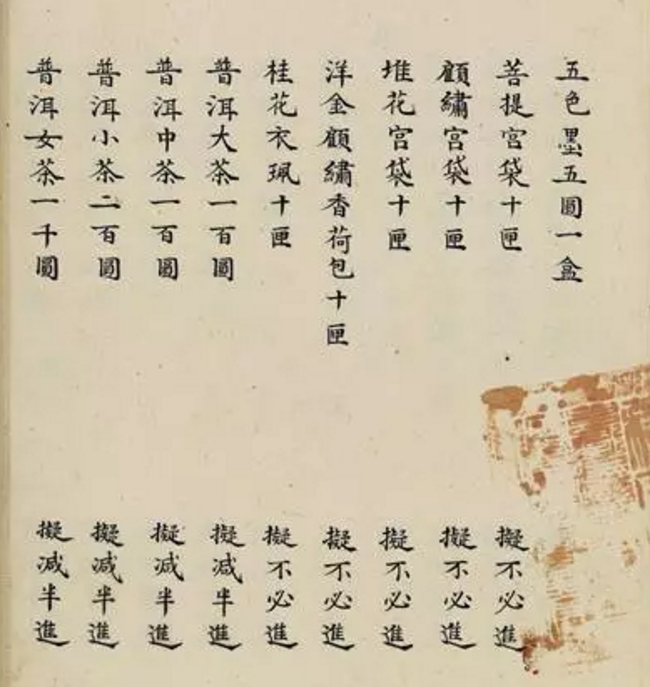 五色墨五圓一盒
菩提宫袋十匣 擬不必進
顧繡宫袋十匣 擬不必進
堆花宫袋十匣 擬不必進
洋金顧繡香荷包十匣 擬不必進
桂花衣珮十匣 擬不必進
普洱大茶一百圓 擬減半進
普洱中茶一百圓 擬減半進
普洱小茶二百圓 擬減半進
普洱女茶一千圓 擬減半進